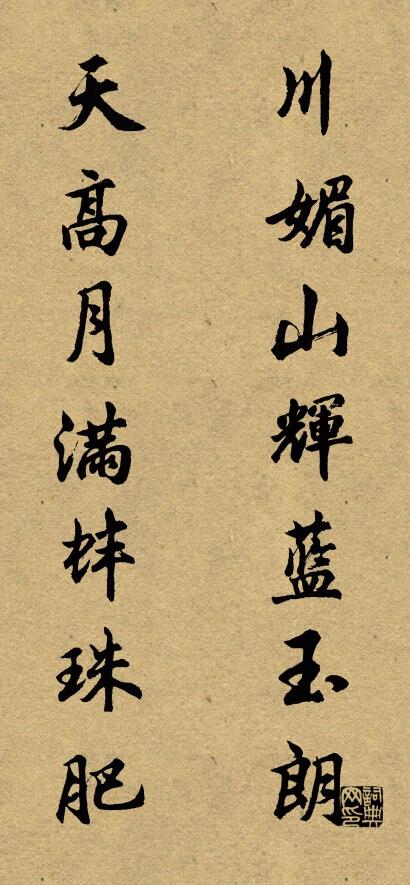 川媚山輝藍玉朗
天高月滿蚌珠肥
詞典
网印